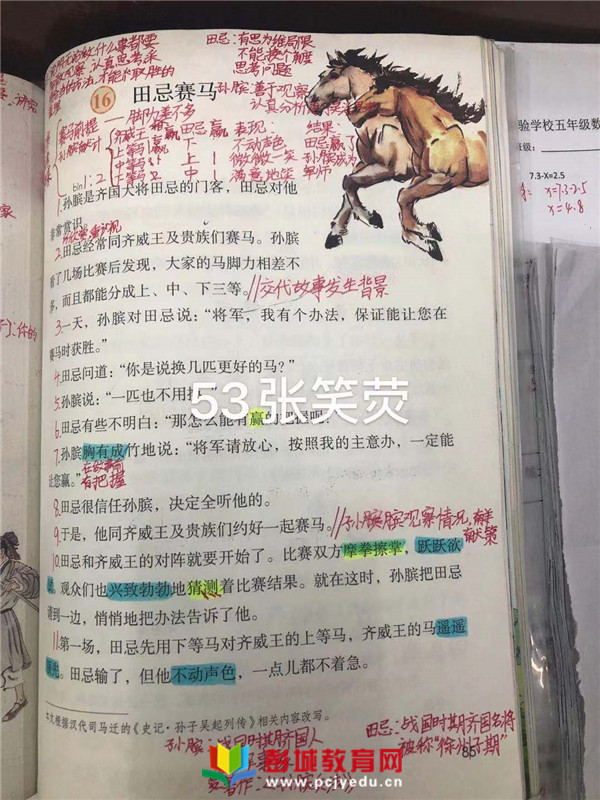 做什么事都要
认真思考采
方法,才能取胜的
田忌:有思为维局限
不能换个角度
思考问题
16 田忌赛马
孙膑:善于观察
认真分析
脚力差不多
赛马前提
齐威王 田忌 表现: 结果:
下 不动声色 田忌
上 微微一笑 孙膑成为
中 满意地笑 军师
1.孙膑是齐国大将田忌的门客,田忌对他
非常赏识。
2.田忌经常同齐威王及贵族们赛马。孙膑
看了几场比赛后发现,大家的马脚力相差不
多,而且都能分成上、中、下三等。//交代故事发生背景
3.一天,孙膑对田忌说:“将军,我有个办法,保证能让您在
赛马时获胜。”
4.田忌问道:“你是说换几匹更好的马?”
5.孙膑说:“一匹也不用换
53张笑荧
6.田忌有些不明白:“那怎么能有赢的把握呢?”
7.孙膑胸有成竹地说:“将军请放心,按照我的主意办,一定能
让您赢。”
有把握
8.田忌很信任孙膑,决定全听他的。
9.于是,他同齐威王及贵族们约好一起赛马。//孙膑膑观察情况,
献策
10.田忌和齐威王的对阵就要开始了。比赛双方摩拳擦掌,跃跃欲
观众们也兴致勃勃地猜测着比赛结果。就在这时,孙膑把田忌
请到一边,悄悄地把办法告诉了他。
11.第一场,田忌先用下等马对齐威王的上等马,齐威王的马遥遥
田忌输了,但他不动声色,一点儿都不着急。
本文根据汉代司马迁的《史记·孙子吴起列传》相关内容改写。
85
孙膑:战国时期齐国人
田忌:战国时期齐国名将
被称“徐州子期”
验学校五年级数
班级:
7.3-X=2.5
x=7.3-2.5
x=4.8
彭城教育网
www.pcjyedu.cn